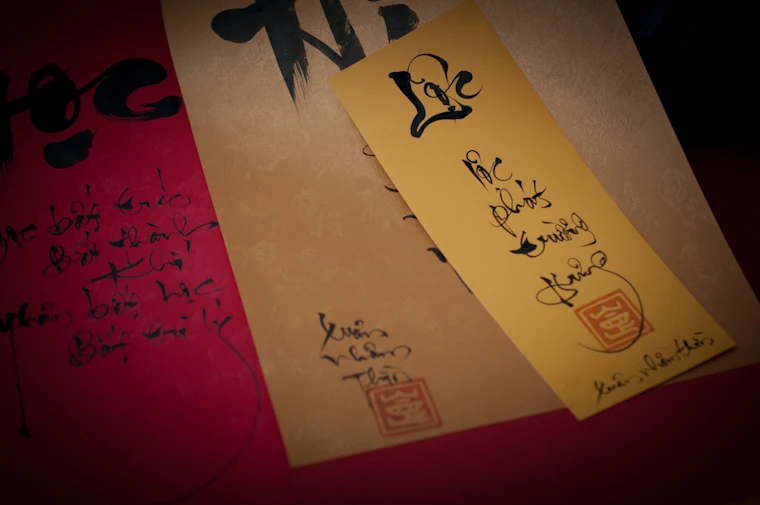 Học
Ngọc bất trác
Bất thành
Khí
Nhân bất học
Bất tri lý
Xuân
Nhâm
Thìn
Lộc
Lộc
phát
trường
Hưng
Xuân nhâm thìn